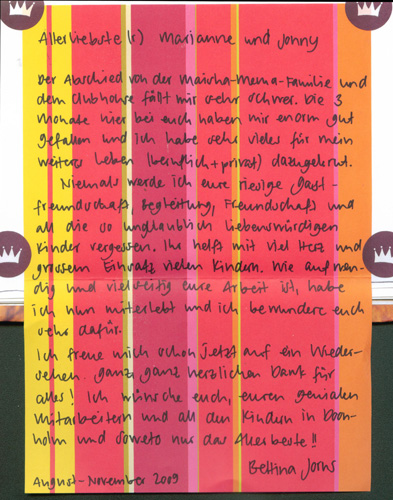 Allerliebste(r) Marianne und Jonny
Der Abschied von der Maisha-Mema-Familie und
dem Clubhouse fällt mir sehr schwer. Die 3
Monate hier bei euch haben mir enorm gut
gefallen und ich habe sehr vieles für mein
weiteres Leben (beruflich + privat) dazugelernt.
Niemals werde ich eure riesige Gast-
freundschaft, Begleitung, Freundschaft und
all die so unglaublich liebenswürdigen
Kinder vergessen. Ihr helft mit viel Herz und
grossem Einsatz vielen Kindern. Wie aufwen-
dig und vielseitig eure Arbeit ist, habe
ich nun miterlebt und ich bewundere euch
sehr dafür.
Ich freue mich schon jetzt auf ein Wieder-
sehen. Ganz, ganz herzlichen Dank für
alles! Ich wünsche euch, euren genialen
Mitarbeitern und all den Kindern in Doon-
holm und Soweto nur das Allerbeste!!
Bettina Jorns
August-November 2009